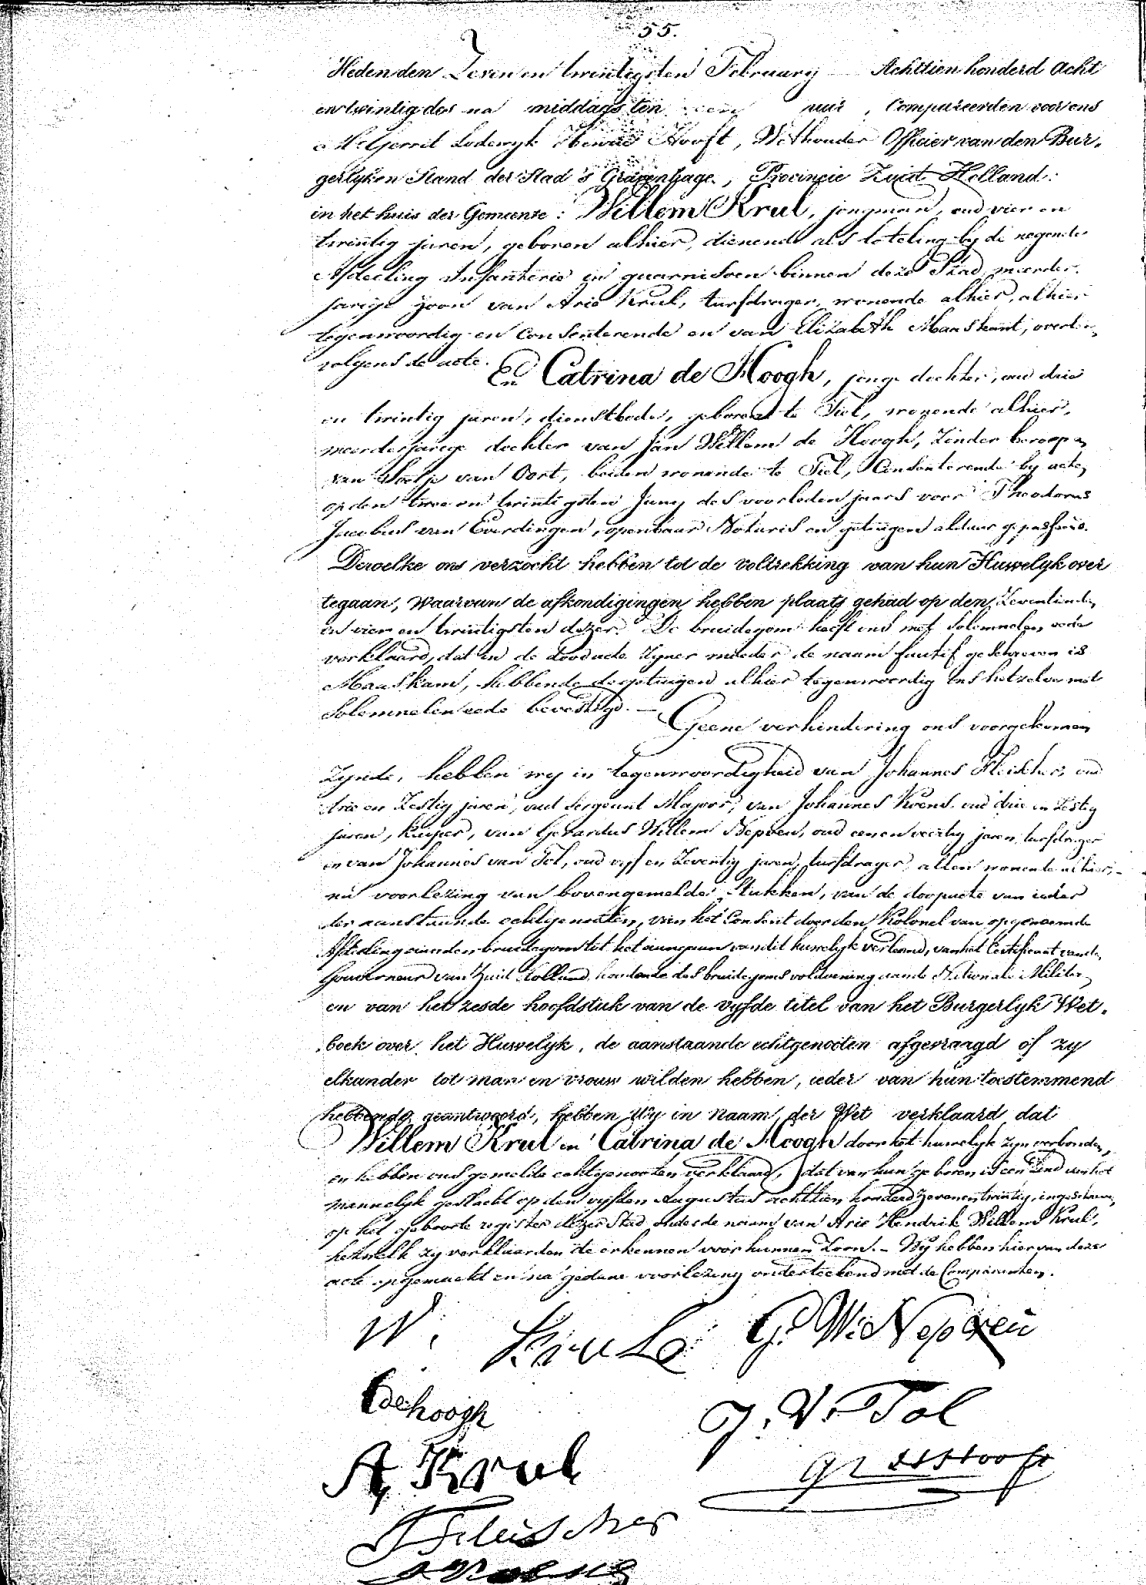 55.
Heden den Zeven en twintigsten February Achttien honderd acht
en twintig des na middags ten een uur, Compareerden voor ons
Gerrit Lodewyk Hooft, Wethouder Officier van den Bur-
gerlyken Stand der Stad 's Gravenhage, Provincie Zuid-Holland:
in het huis der Gemeente: Willem Krul, jongman, oud vier en
twintig jaren, geboren alhier, dienende als loteling by de negende
Afdeeling Infanterie in guarnisoen binnen deze Stad, meerder-
jarige zoon van Arie Krul, turfdrager, wonende alhier, alhier
tegenwoordig en Consenterende en van Elizabeth Maaskant, overle
volgens de acte. En Catrina de Hoogh, jonge dochter, oud drie
en twintig jaren, dienstbode, geboren te Tiel, wonende alhier,
meerderjarige dochter van Jan Willem de Hoogh, zonder beroep en
van van Oort, beiden wonende te Tiel, Consenterende by acte
op den twee en twintigsten Juny des voorleden jaars voor Theodorus
Jacobus van Everdingen, openbaar Notaris en getuigen aldaar gepasseerd.
Dewelke ons verzocht hebben tot de voltrekking van hun Huwelyk over
tegaan, waarvan de afkondigingen hebben plaats gehad op den Zeventienden
en vier en twintigsten dezer. De bruidegom heeft ons met Solemnelen eede
verklaard, dat in de doodacte zyner moeder de naam foutif geschreven is
Maaskam, hebbende de getuigen alhier tegenwoordig ons hetzelve met
Solemnelen eede bevestigd. — Geene verhindering ons voorgekomen
zynde, hebben wy in tegenwoordigheid van Johannes Fleischer, oud
drie en Zestig jaren, oud Sergeant Majoor, van Johannes Kroens, oud drie en Zestig
jaren, Kuiper, van Gerardus Willem Nepveu, oud een en veertig jaren, turfdrager
en van Johannes van Tol, oud vyf en Zeventig jaren, turfdrager, allen wonende alhier,
na voorlezing van bovengemelde Stukken, van de doopacte van ieder
der aanstaande echtgenooten, van het Consent door den Kolonel van opgenoemde
Afdeeling aan den bruidegom tot het aangaan van dit huwelyk verleend, van het Certificaat van de
Gouverneur van Zuid Holland, houdende des bruidegoms voldoening aan de Nationale Militie
en van het zesde hoofdstuk van de vyfde titel van het Burgerlyk Wet-
boek over het Huwelyk, de aanstaande echtgenooten afgevraagd of zy
elkander tot man en vrouw wilden hebben, ieder van hun toestemmend
hebbende geantwoord, hebben wy in naam der Wet verklaard dat
Willem Krul en Catrina de Hoogh door het huwelyk zyn verbonden,
en hebben ons gemelde echtgenooten verklaard, dat van hun geboren is een kind van het
mannelyk geslacht op den vyfden Augustus achttien honderd zeven en twintig, ingeschreven
op het geboorte register dezer Stad onder de naam van Arie Hendrik Willem Krul,
hetwelk zy verklaarden te erkennen voor hunnen Zoon. – Wy hebben hier van deze
acte opgemaakt en na gedane voorlezing onderteekend met de Comparanten.
W. Krul G. W. Nepveu
C de hoogh J. V. Tol
A Krul
J Fleischer